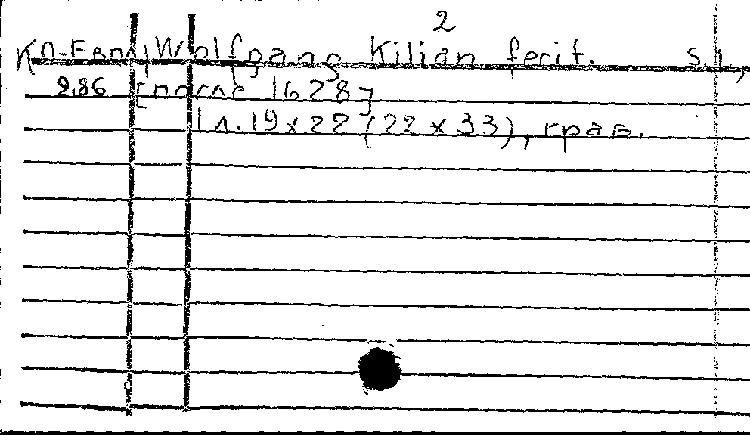 2
Wolfgang Kilian fecit. s.l.,
2.86 [после 1628]
1 л. 19 x 22 (22 x 33), грав.